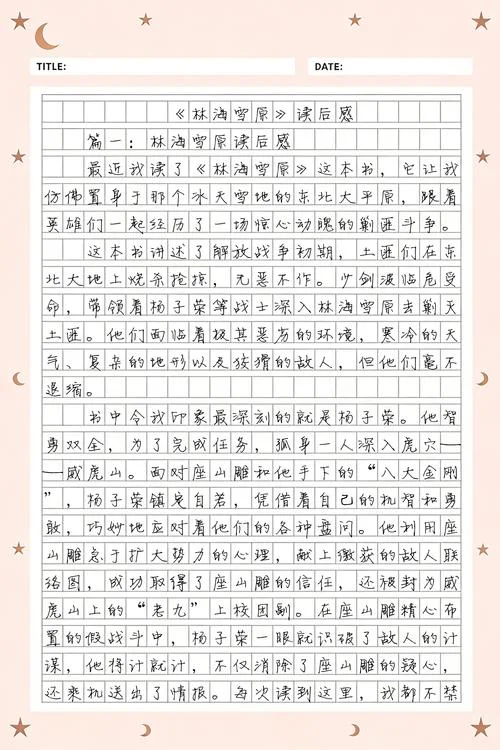 TITLE:
DATE:
《林海雪原》读后感
篇一：林海雪原读后感
最近我读了《林海雪原》这本书，它让我
仿佛置身于那个冰天雪地的东北大平原，跟着
英雄们一起经历了一场惊心动魄的剿匪斗争。
这本书讲述了解放战争初期，土匪们在东
北大地上烧杀抢掠，无恶不作。少剑波临危受
命，带领着杨子荣等战士深入林海雪原去剿灭
土匪。他们面临着极其恶劣的环境，寒冷的天
气、复杂的地形以及狡猾的敌人，但他们毫不
退缩。
书中令我印象最深刻的就是杨子荣。他智
勇双全，为了完成任务，孤身一人深入虎穴—
—威虎山。面对座山雕和他手下的“八大金刚
”，杨子荣镇定自若，凭借着自己的机智和勇
敢，巧妙地应对着他们的各种盘问。他利用座
山雕急于扩大势力的心理，献上缴获的敌人联
络图，成功取得了座山雕的信任，还被封为威
虎山上的“老九”上校团副。在座山雕精心布
置的假战斗中，杨子荣一眼就识破了敌人的计
谋，他将计就计，不仅消除了座山雕的疑心，
还乘机送出了情报。每次读到这里，我都不禁